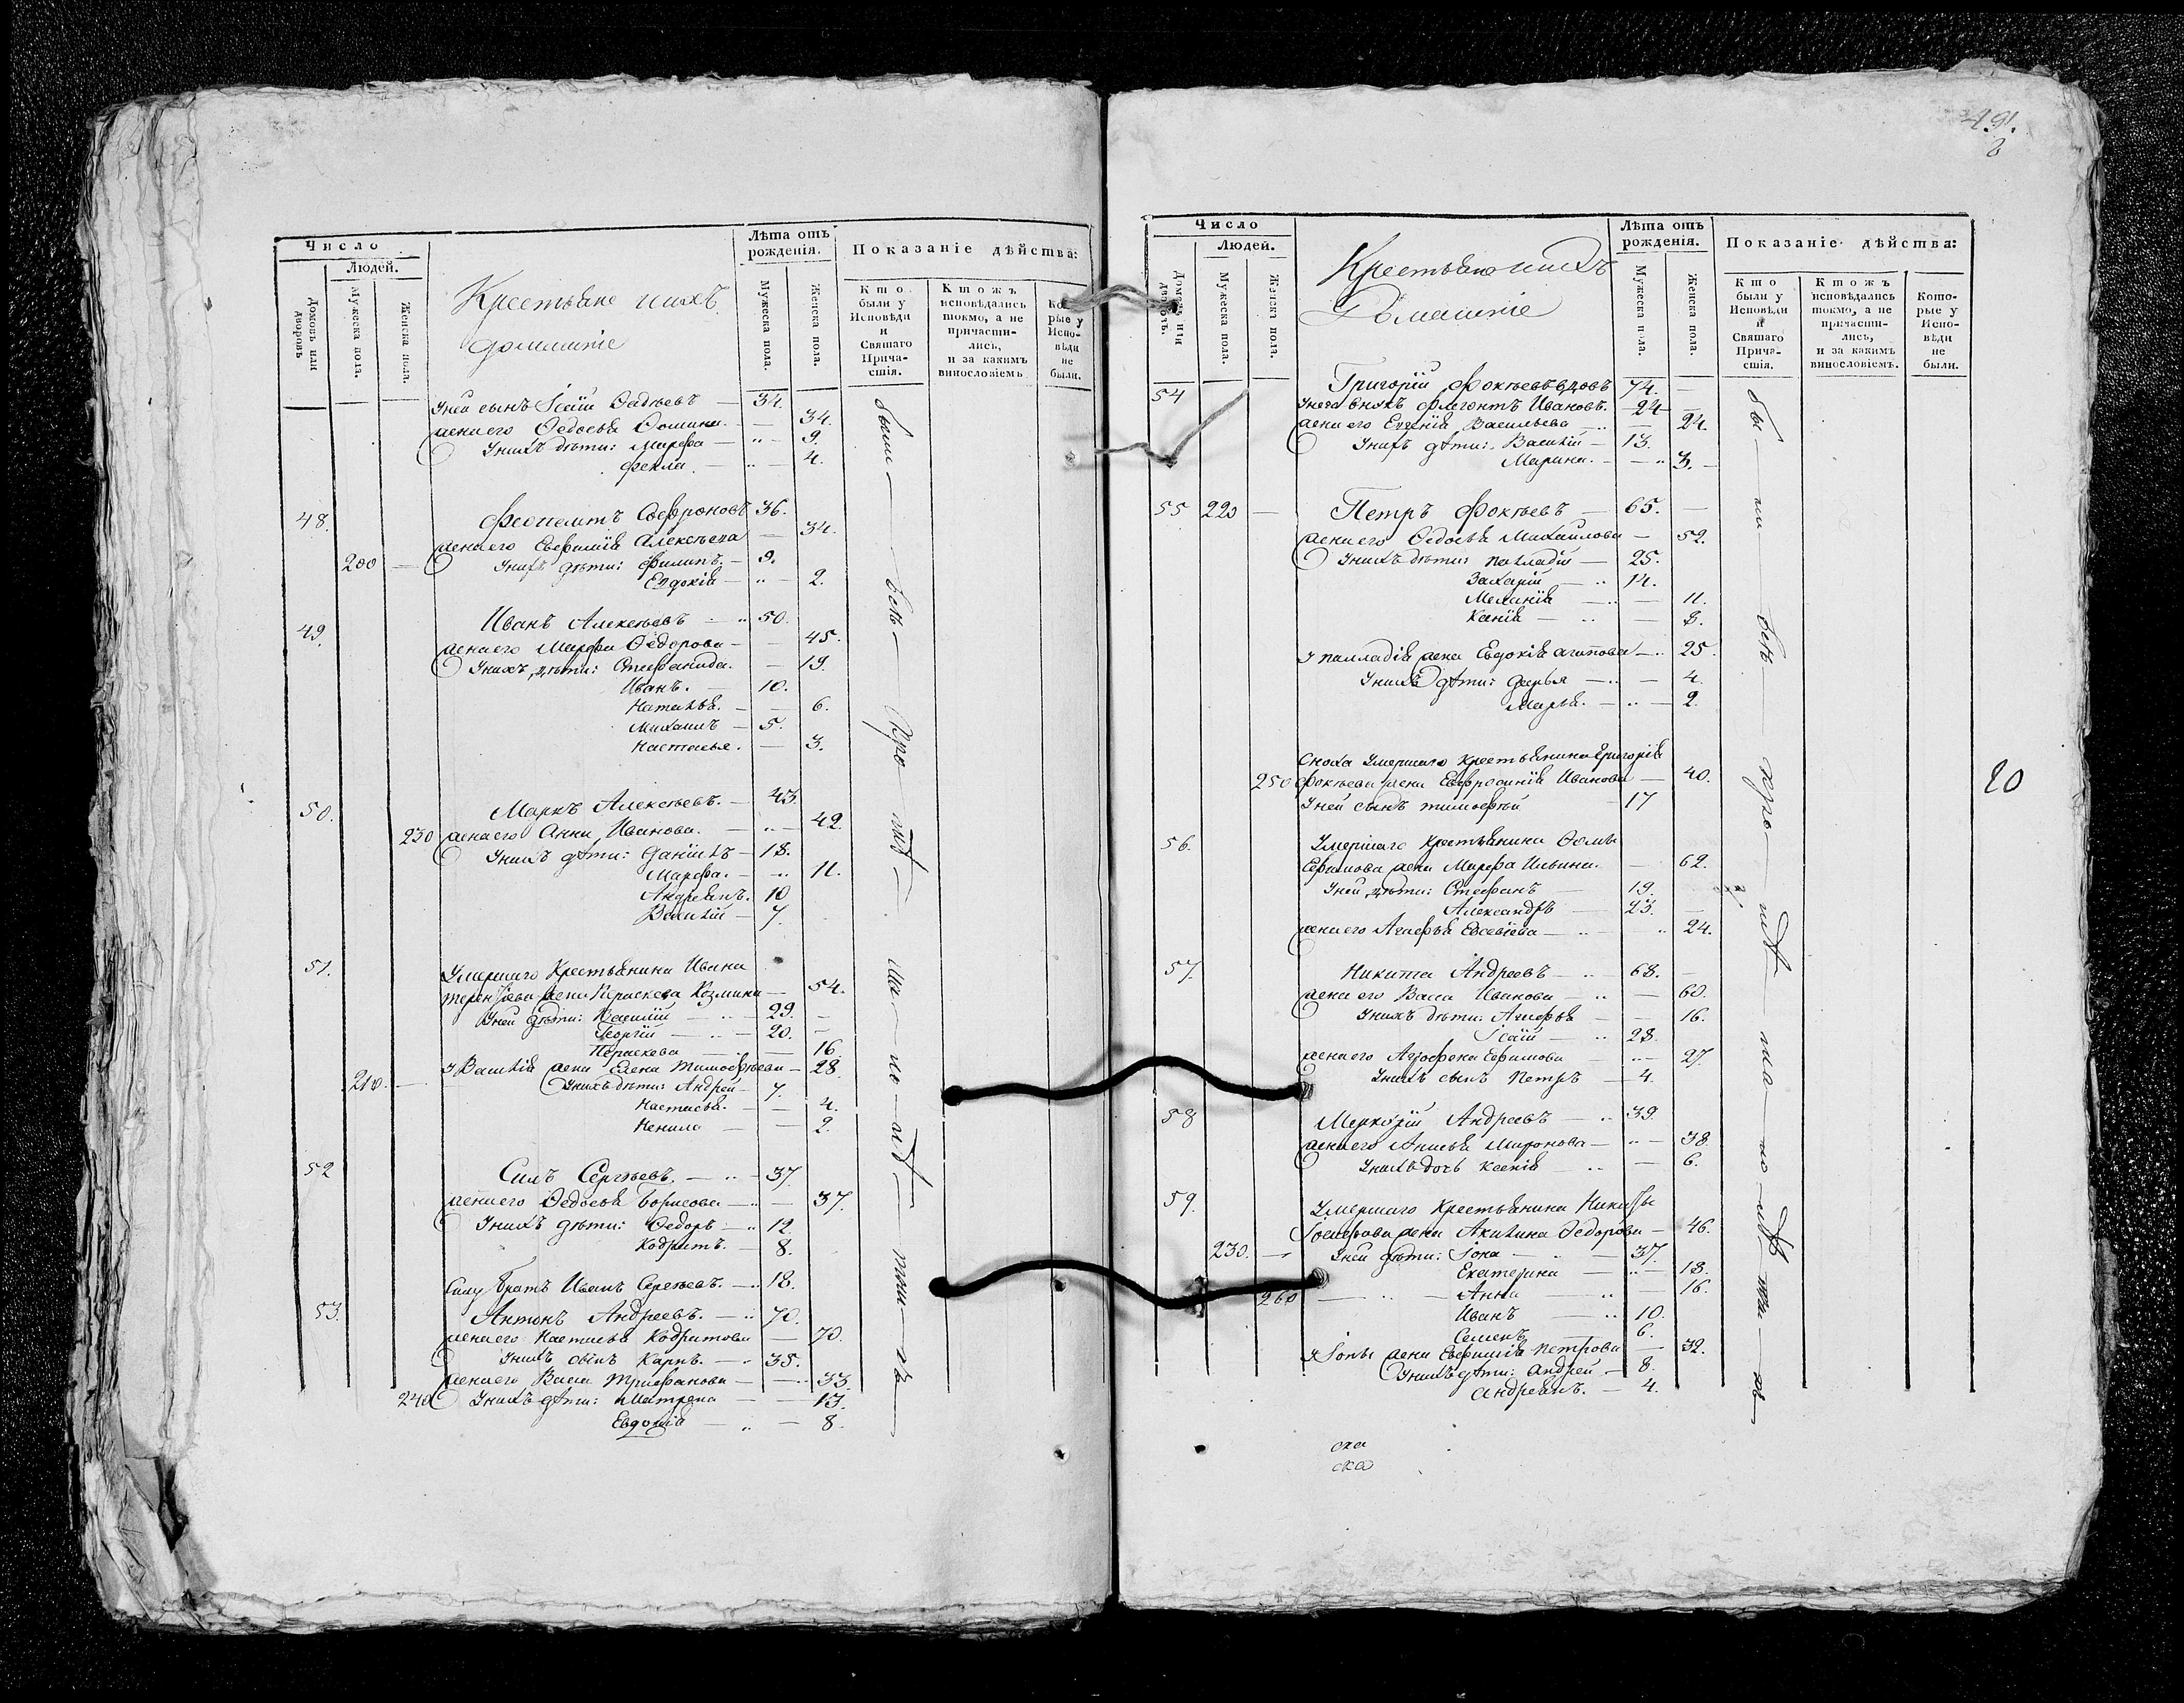 Число
Людей.
Домовъ или дворовъ
Мужеска пола.
Женска пола.
Крестьяне ихъ
домашніе
Лѣта отъ рожденія.
Мужеска пола.
Женска пола.
Показаніе дѣйства:
Кто были у Исповѣди и Святаго Прича-стія.
Ктожъ исповѣдались токмо, а не причасти-лись, и за какимъ винословіемъ
Кото-рые у Испо-вѣди не были.
Уней сынъ Исаій Фадѣевъ — 34.
жена его Ѳедосья Ѳомина — 34.
Унихъ дѣти: Марфа — 9.
Фекла — 4.
48. Софроновъ 36.
жена его Евфимія Алексѣева — 34.
200 — Унихъ дѣти: Филипъ — 9.
Евдокія — 2.
49. Иванъ Алексѣевъ — 50.
жена его Марфа Ѳедорова — 45.
Унихъ дѣти: Стефанида. — 19.
Иванъ. — 10.
Наталья. — 6.
Михаилъ — 5.
Настасья. — 3.
50. Маркъ Алексѣевъ. — 43.
230 жена его Анна Иванова. — 42.
Унихъ дѣти: Даніилъ — 18.
Марфа. — 11.
Андреянъ. 10
Василій — 7.
51. Умершаго Крестьянина Ивана
жена Параскева Козмина — 54.
Уней дѣти: Василій — 29. —
Георгій — 20. —
Параскева — 16.
У Василія жена Елена Тимофѣева — 28.
210. — Унихъ дѣти: Андрей — 7.
Настасья. — 4.
Ненила — 2.
52 Силъ Сергѣевъ. — 37.
жена его Ѳедосья Борисова — 37.
Унихъ дѣти: Ѳедоръ — 12.
Кодратъ. — 8.
Силу братъ Иванъ Сергѣевъ. — 18.
53. Антонъ Андреевъ. — 70.
жена его Настасья Кодратова — 70.
Унихъ сынъ Карпъ. — 35.
жена его Васса Трифанова — 33.
240 Унихъ дѣти: Матрена — 13.
Евдокія — 8.
были — всѣ — про
491.
Число
Людей.
Домовъ или дворовъ.
Мужеска пола.
Женска пола.
Крестьяне ихъ
Домашніе
Лѣта отъ рожденія.
Мужеска пола.
Женска пола.
Показаніе дѣйства:
Кто были у Исповѣди и Святаго Прича-стія.
Ктожъ исповѣдались токмо, а не причасти-лись, и за какимъ винословіемъ.
Кото-рые у Испо-вѣди не были.
54 Григорій Фоктѣевъ вдовъ 74. —
Унего внукъ Флегонтъ Ивановъ. — 24 —
жена его Евгенія Васильева — 24.
Унихъ дѣти: Василій — 13.
Марина. — 3. —
55 220 — Петръ Фоктѣевъ — 65. —
жена его Ѳедосья Михайлова — 52.
Унихъ дѣти: Палладій — 25.
Захарій — 14.
Меланія — 11.
Ксенія — 8.
У Палладія жена Евдокія Агапова — 25.
Унихъ дѣти: Дарья — 4.
Марья. — 2.
Сноха Умершаго Крестьянина Григорія
250 Фоктѣева жена Евфросинія Иванова — 40.
Уней сынъ Тимофѣй 17
56. Умершаго Крестьянина Ѳомы
Ефимова жена Марфа Ильина. — 62.
Уней дѣти: Стефанъ — 19.
Александръ — 23. —
жена его Агафья Евсевіева — 24.
57. Никита Андреевъ — 68. —
жена его Васса Иванова — 60.
Унихъ дѣти: Агафья — 16.
Исаій — 28.
жена его Агрофена Ефимова — 27.
Унихъ сынъ Петръ — 4.
58 Меркурій Андреевъ — 39.
жена его Анисья Миронова — 38.
Унихъ дочь Ксенія — 6.
59. Умершаго Крестьянина Никиты
жена Акилина Ѳедорова — 46.
230. — Уней дѣти: Іона — 37.
Екатерина — 18.
260 — Анна — 16.
Иванъ — 10.
Семенъ — 6.
У Іоны жена Евфимія Петрова — 32.
Унихъ дѣти: Андрей — 8.
Андреянъ. — 4.
бы — ли — всѣ — про
20